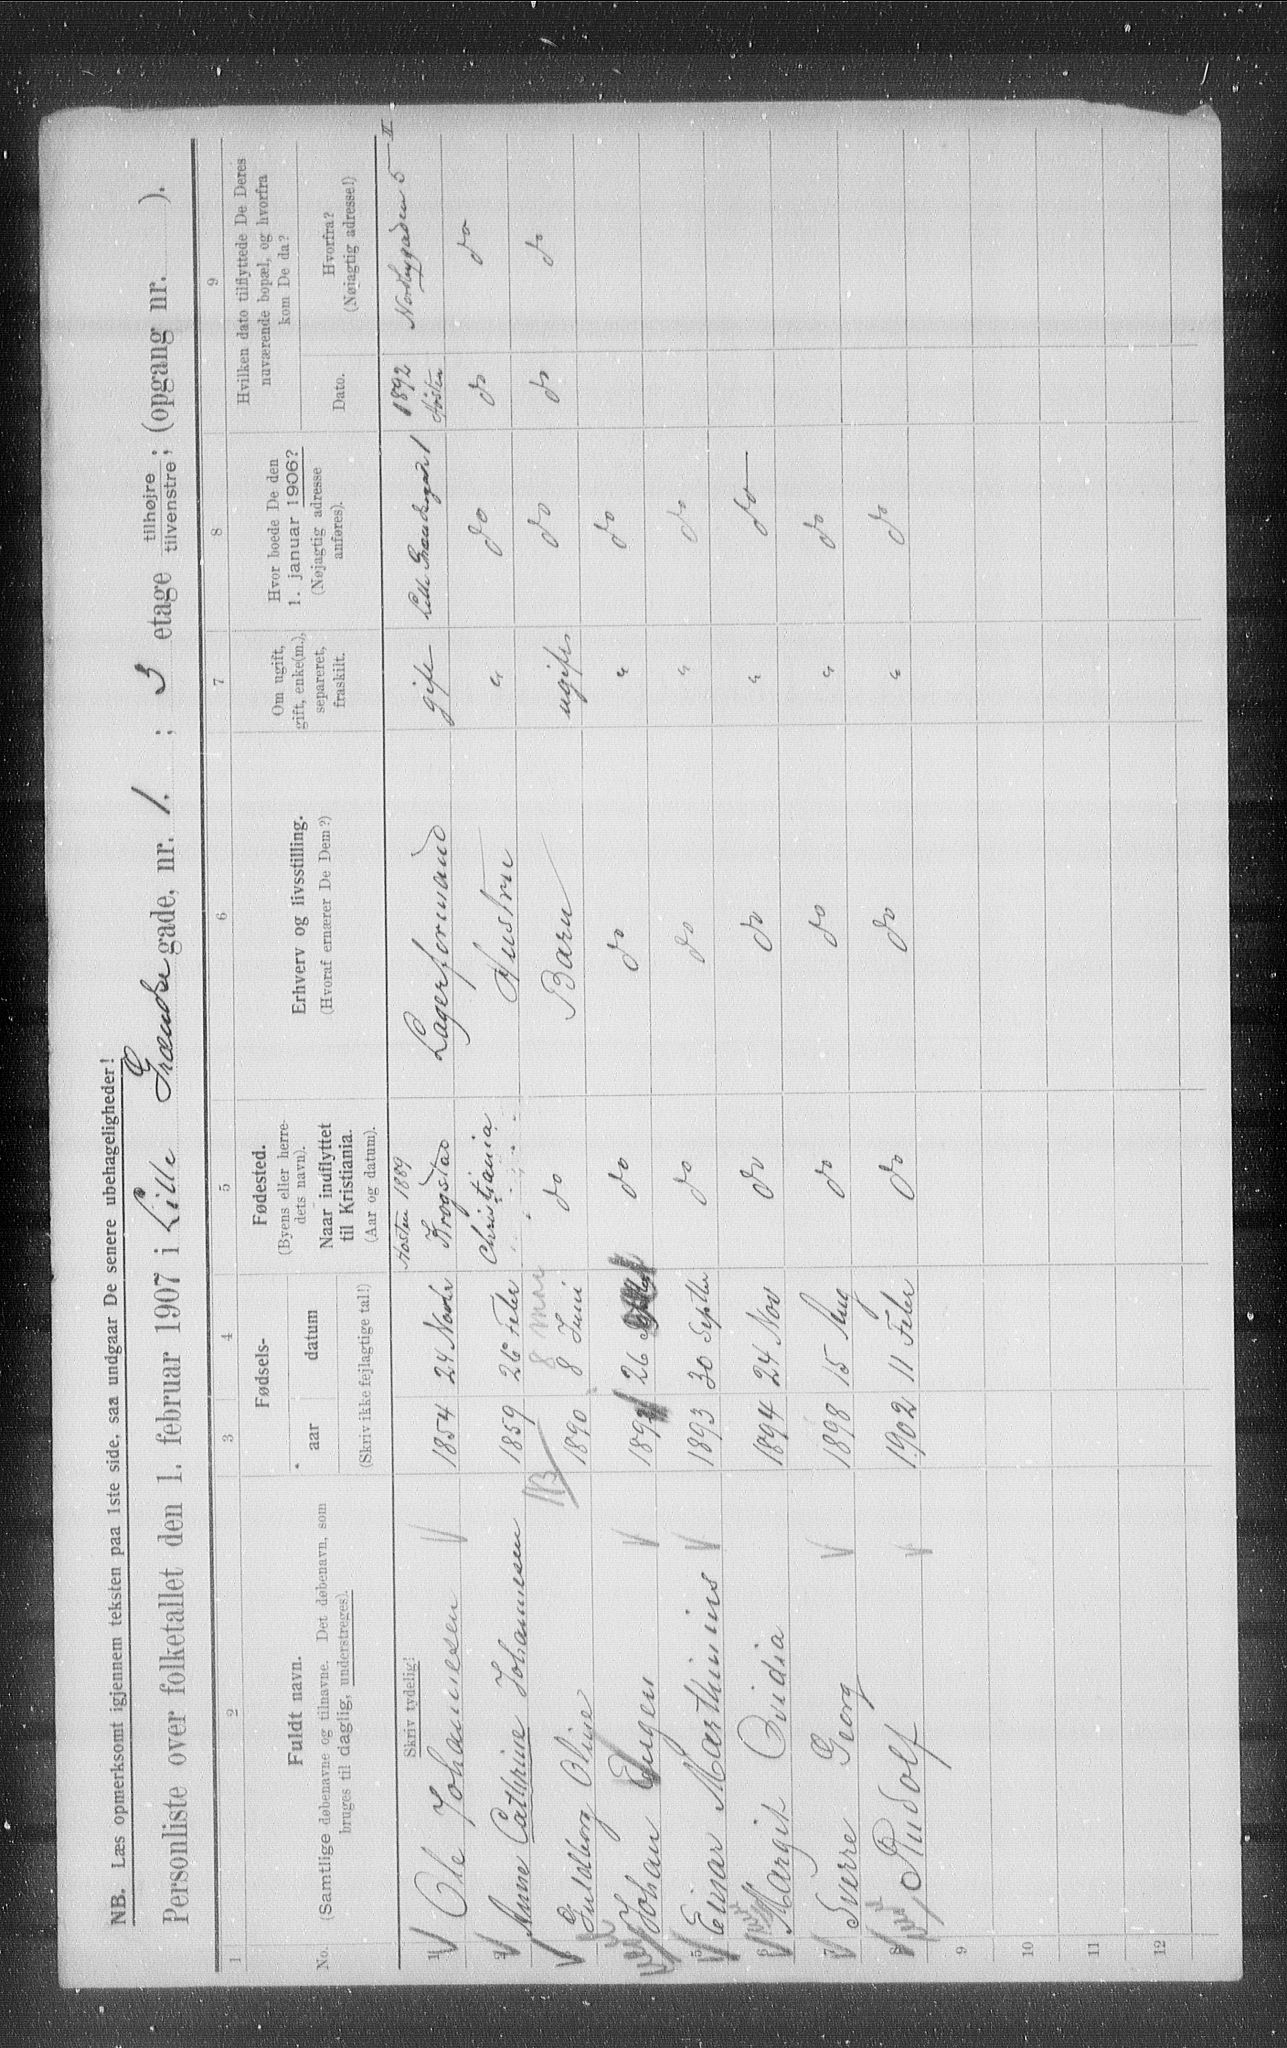 NB. Læs opmerksomt igjennem teksten paa 1ste side, saa undgaar De senere ubehageligheder!
Personliste over folketallet den 1. februar 1907 i Lille Grændse gade, nr. 1. ; 3 etage tilhøjre / tilvenstre ; (opgang nr. ).
1 2 3 4 5 6 7 8 9
No.
Fuldt navn.
(Samtlige døbenavne og tilnavne. Det døbenavn, som
bruges til daglig, understreges).
Fødsels-
aar datum
(Skriv ikke fejlagtige tal!)
Fødested.
(Byens eller herre-
dets navn).
Naar indflyttet
til Kristiania.
(Aar og datum).
Erhverv og livsstilling.
(Hvoraf ernærer De Dem?)
Om ugift,
gift, enke(m.),
separeret,
fraskilt.
Hvor boede De den
1. januar 1906?
(Nøjagtig adresse
anføres).
Hvilken dato tilflyttede De Deres
nuværende bopæl, og hvorfra
kom De da?
Dato.
Hvorfra?
(Nøjagtig adresse!)
Skriv tydelig! Høsten 1889 1892
1 Ole Johannesen 1854 24 Novbr Krogstad Lagerformand gift Lille Grændsegade 1 Høsten Nordbygaden 5 II
2 Anne Cathrine Johannesen 1859 26 Feber Christiania Hustru " do do do
NB 8 mai
3 Guldborg Olive 1890 8 Juni do Barn ugift do do do
4 Johan Eugen 189 26 do do " do
5 Einar Marthinius 1893 30 Septbr do do " do
6 Margit Ovidia 1894 24 Nov do do " do
7 Sverre Georg 1898 15 Aug do do " do
8 Rudolf 1902 11 Feber do do " do
9
10
11
12